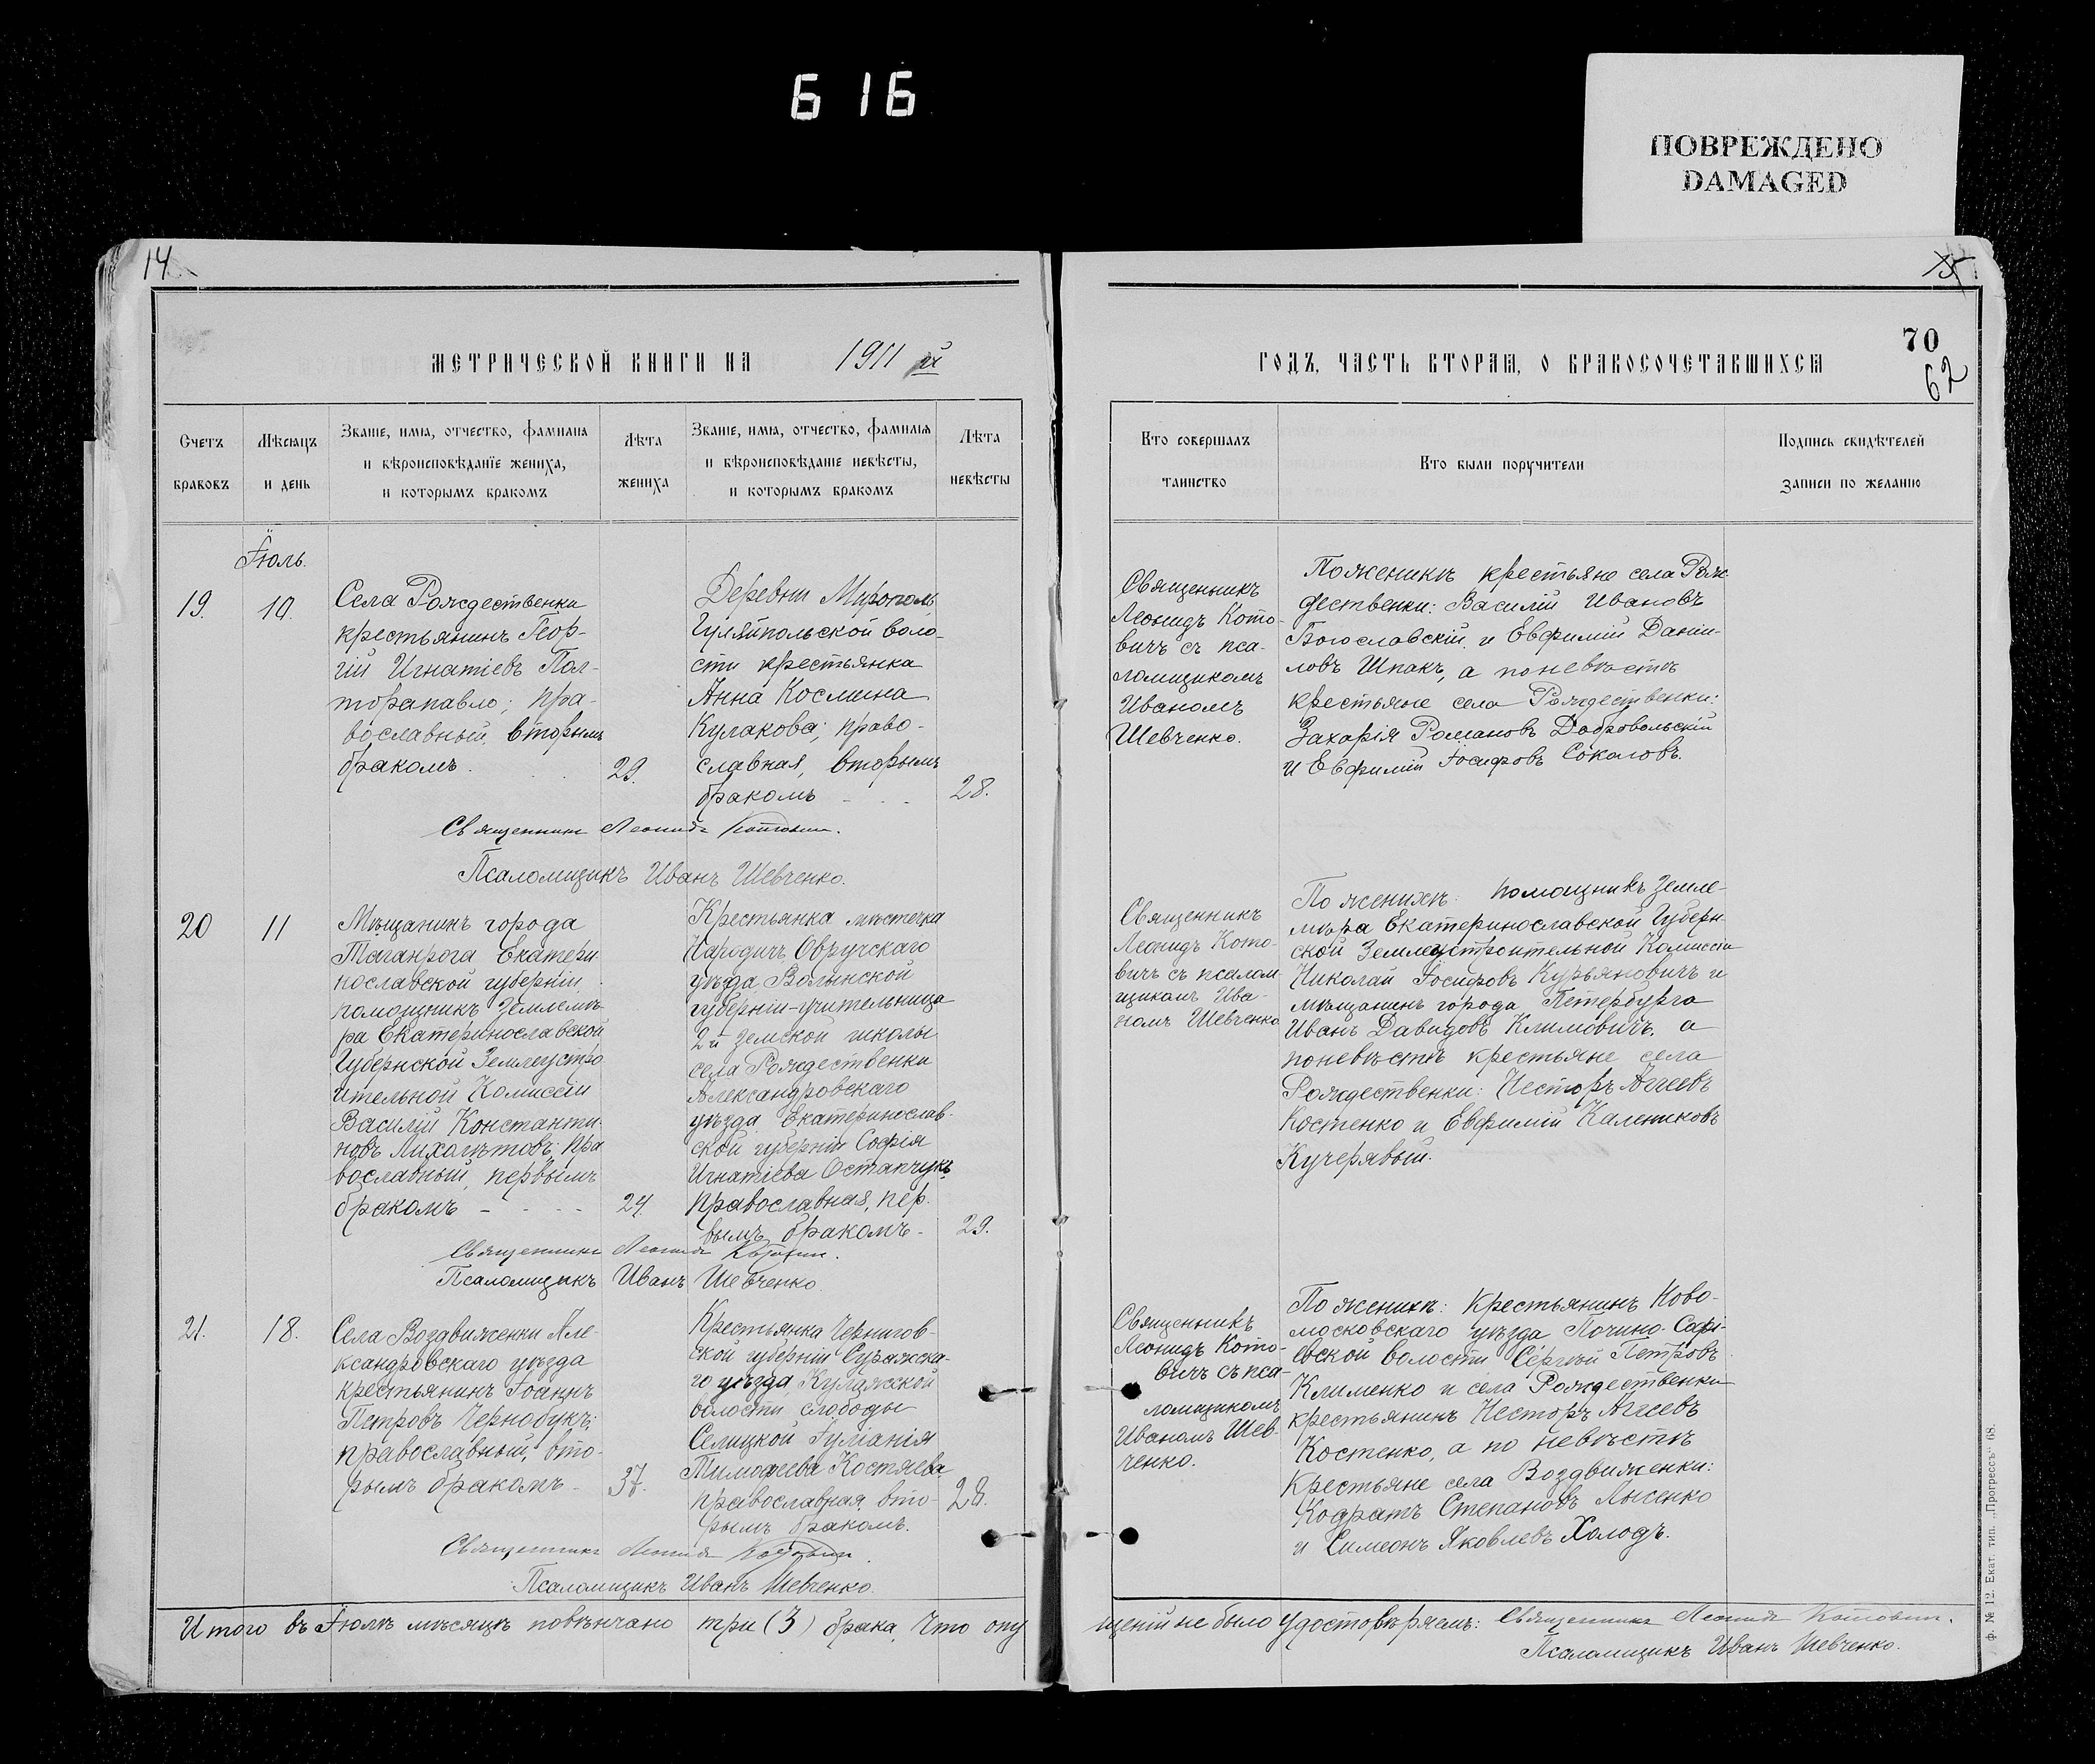 616
ПОВРЕЖДЕНО
DAMAGED
14
15
МЕТРИЧЕСКОЙ КНИГИ НА 1911 й
ГОДЪ, ЧАСТЬ ВТОРАЯ, О БРАКОСОЧЕТАВШИХСЯ
70
62
Счетъ
браковъ
Мѣсяцъ
и день
Званіе, имя, отчество, фамилія
и вѣроисповѣданіе жениха,
и которымъ бракомъ
Лѣта
жениха
Званіе, имя, отчество, фамилія
и вѣроисповѣданіе невѣсты,
и которымъ бракомъ
Лѣта
невѣсты
Кто совершалъ
таинство
Кто были поручители
Подпись свидѣтелей
записи по желанію
Іюль.
19.
10.
Села Рождественки
крестьянинъ Геор-
гій Игнатіевъ Пол-
торапавло; пра-
вославный, вторымъ
бракомъ.
29.
Деревни Мирополь
Гуляйпольской воло-
сти крестьянка
Анна Космина
Кулакова; право-
славная, вторымъ
бракомъ - - -
28.
Священникъ
Леонидъ Кото-
вичъ съ пса-
ломщикомъ
Иваномъ
Шевченко.
По женихѣ крестьяне села Рож-
дественки: Василій Ивановъ
Богославскій, и Евфимій Даніи-
ловъ Шпакъ, а по невѣстѣ
крестьяне села Рождественки:
Захарія Романовъ Добровольскій
и Евфимій Іосифовъ Соколовъ.
Священникъ Леонидъ Котовичъ.
Псаломщикъ Иванъ Шевченко.
20
11
Мѣщанинъ города
Таганрога Екатери
нославской губерніи,
помощникъ Землемѣ-
ра Екатеринославской
Губернской Землеустро
ительной Комиссіи
Василій Константи-
новъ Лихолѣтовъ; пра
вославный, первымъ
бракомъ - - - -
24.
Крестьянка мѣстечка
Народичъ Овручскаго
уѣзда Волынской
губерніи-учительница
2й земской школы
села Рождественки
Александровскаго
уѣзда Екатеринослав-
ской губерніи Софія
Игнатіева Остапчукъ,
православная, пер-
вымъ бракомъ -
29.
Священникъ
Леонидъ Кото-
вичъ съ псалом
щикомъ Ива-
номъ Шевченко
По женихѣ: помощникъ Земле-
мѣра Екатеринославской Губерн-
ской Землеустроительной Комиссіи
Николай Іосифовъ Курьяновичъ и
мѣщанинъ города Петербурга
Иванъ Давидовъ Климовичъ, а
по невѣстѣ крестьяне села
Рождественки: Несторъ Агеевъ
Костенко и Евфимій Калениковъ
Кучерявый.
Священникъ Леонидъ Котовичъ.
Псаломщикъ Иванъ Шевченко
21.
18.
Села Воздвиженки Але-
ксандровскаго уѣзда
крестьянинъ Іоаннъ
Петровъ Чернобукъ;
православный, вто-
рымъ бракомъ -
37.
Крестьянка Чернигов-
ской губерніи Суражска-
го уѣзда Кулажской
волости слободы
Селицкой Іуліанія
Тимофеева Костяева
православная вто-
рымъ бракомъ.
28.
Священникъ
Леонидъ Кото-
вичъ съ пса-
ломщикомъ
Иваномъ Шев-
ченко.
По женихѣ: крестьянинъ Ново-
московскаго уѣзда Почино-Софі-
евской волости Сергѣй Петровъ
Клименко и села Рождественки
крестьянинъ Несторъ Агеевъ
Костенко, а по невѣстѣ
крестьяне села Воздвиженки:
Кодратъ Степановъ Лысенко
и Симеонъ Яковлевъ Холодъ.
Священникъ Леонидъ Котовичъ.
Псаломщикъ Иванъ Шевченко.
Итого въ Іюлѣ мѣсяцѣ повѣнчано три (3) брака. Что опу
щеній не было удостовѣряемъ: Священникъ Леонидъ Котовичъ.
Псаломщикъ Иванъ Шевченко.
ф. № 12. Екат. тип. „Прогрессъ" 68.